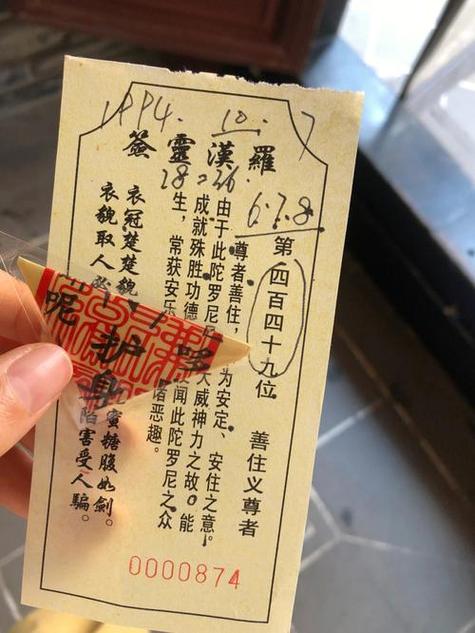 1994. 10. 7
羅漢靈簽
6.7.8
第四百四十九位 善住义尊者
尊者善住，为安定、安住之意。
由于此陀罗尼大威神力之故。能
成就殊胜功德闻此陀罗尼之众
生，常获安乐恶趣。
衣冠楚楚貌蜜糖腹如劍。
衣貌取人陷害受人騙。
护身
呢
0000874